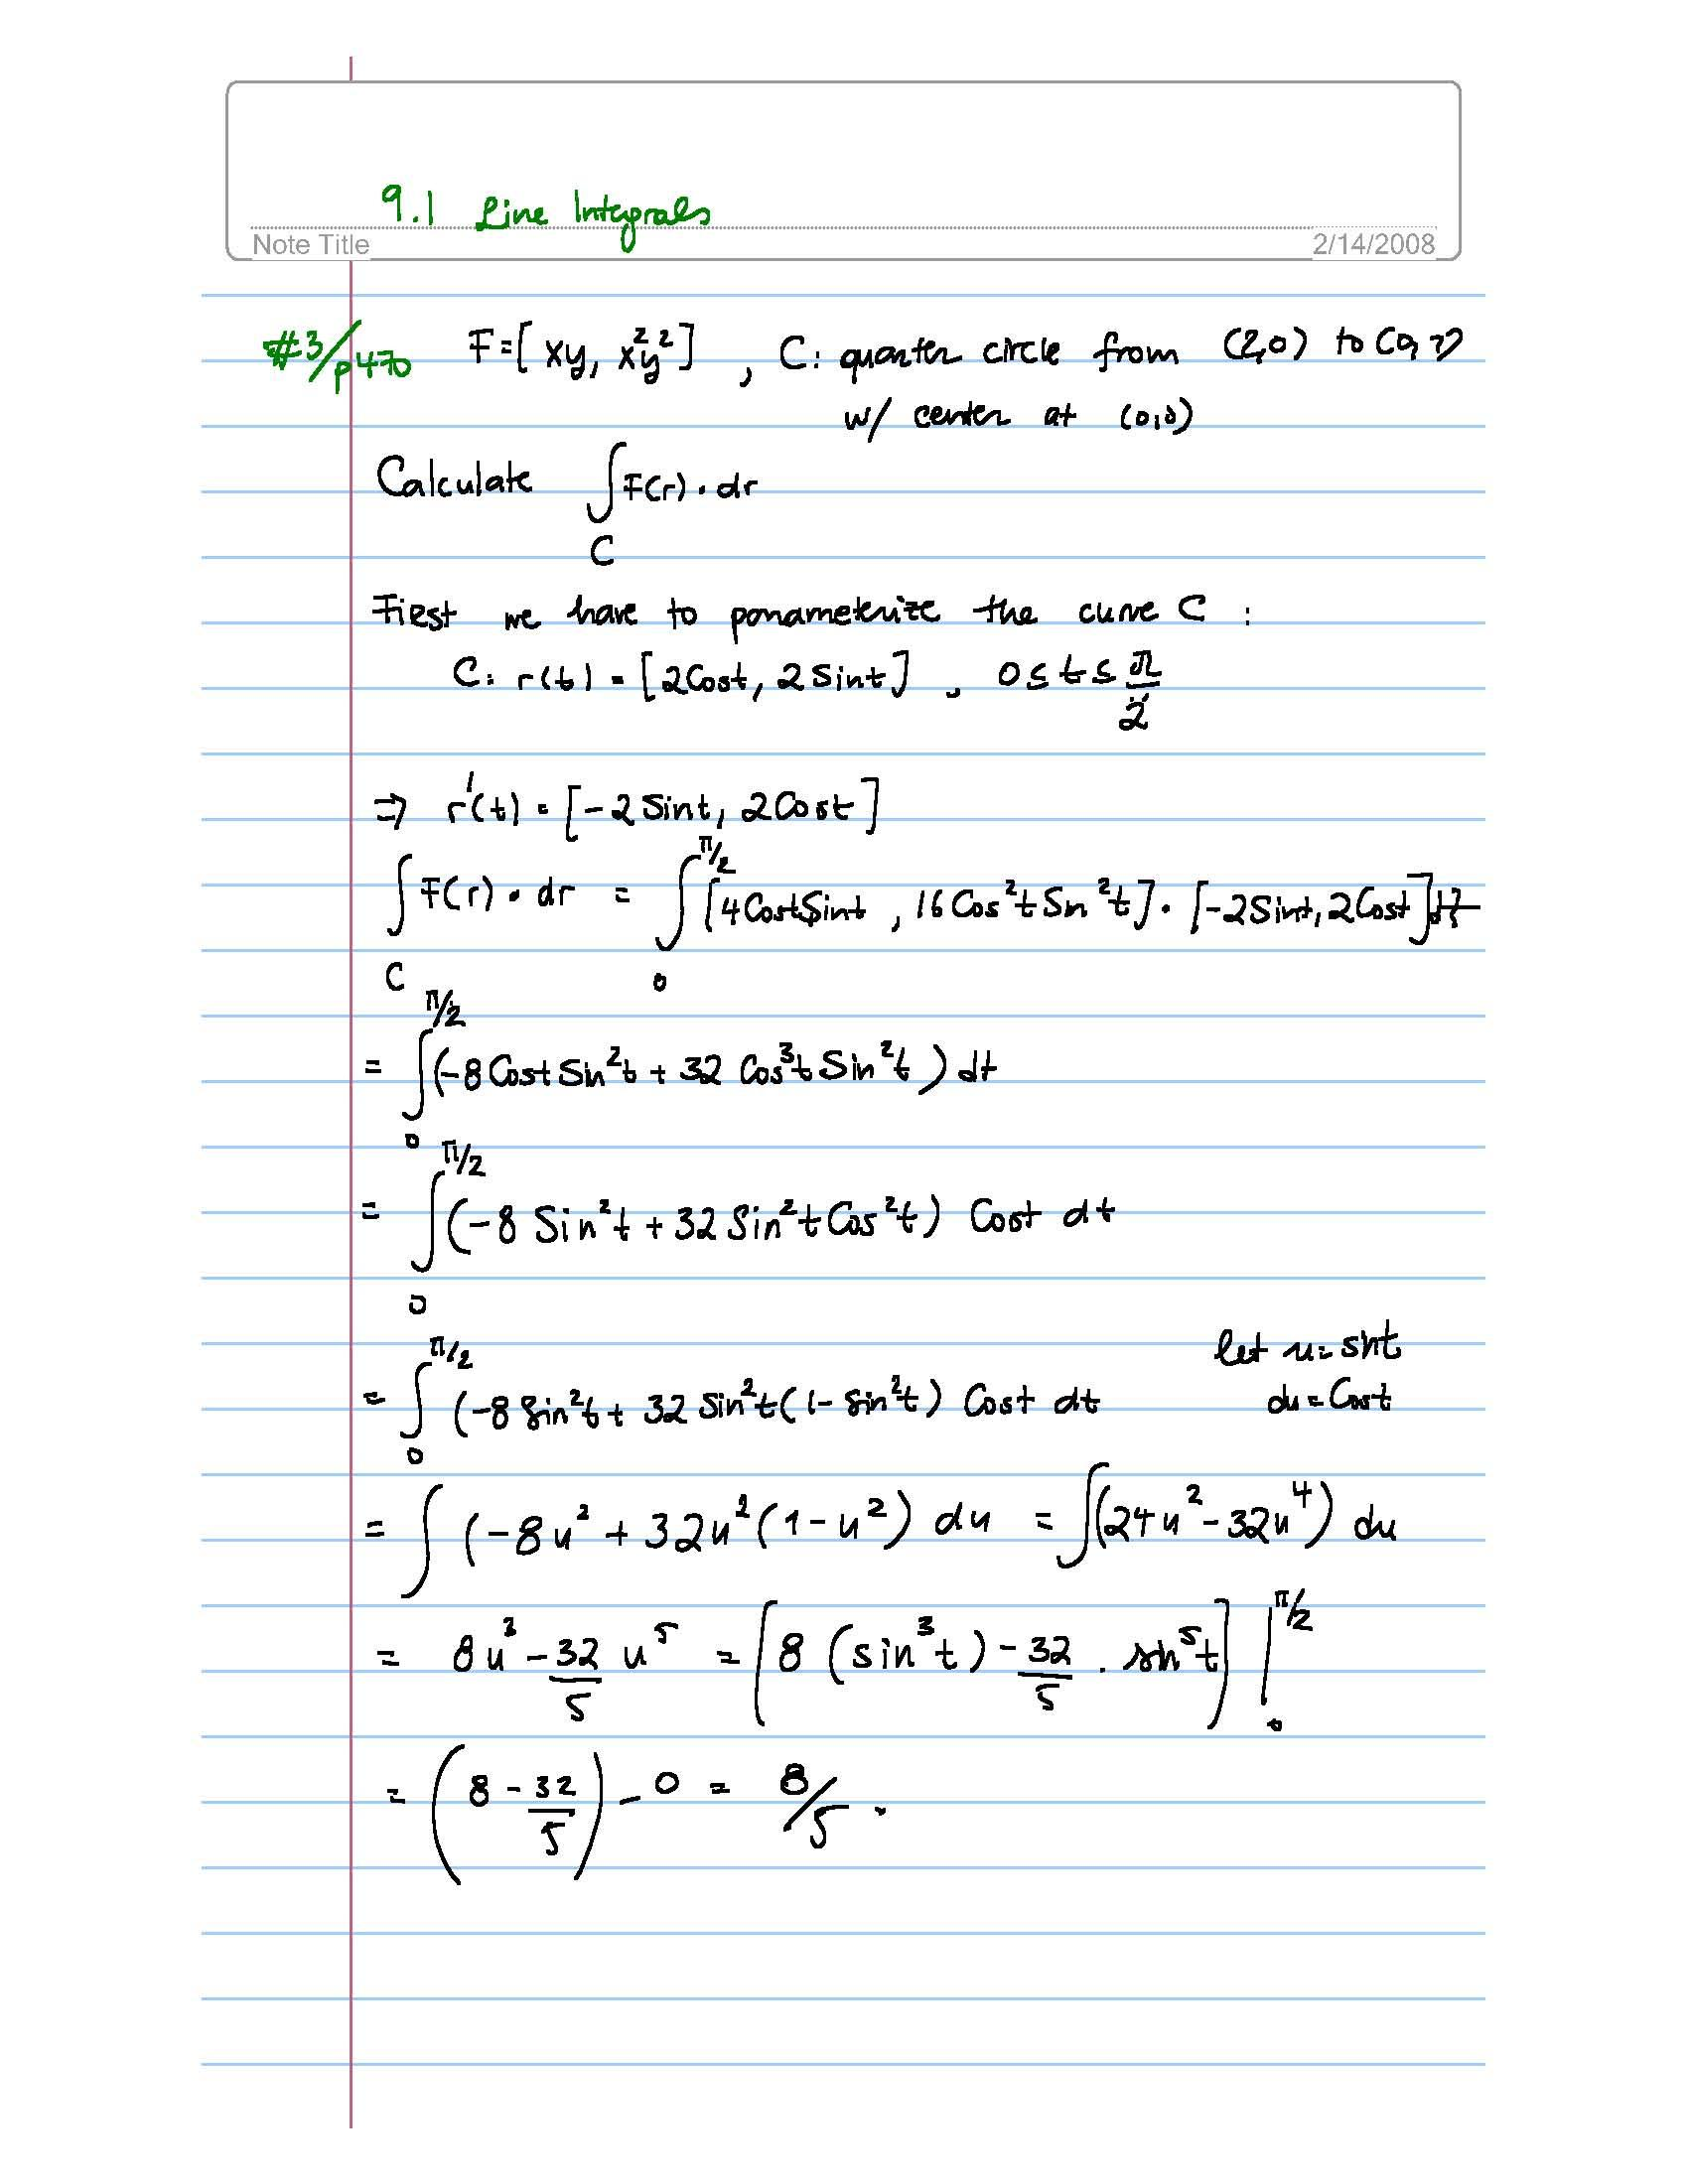 9.1 Line Integrals
Note Title 2/14/2008
#3/p470 F=[xy, x²y²], C: quarter circle from (2,0) to (0,2)
w/ center at (0,0)
Calculate ∫F(r)·dr
C
First we have to parameterize the curve C :
C: r(t) = [2Cost, 2Sint], 0≤t≤π/2
⇒ r'(t) = [-2Sint, 2Cost]
∫_C F(r)·dr = ∫_0^{π/2} [4CostSint, 16Cos²tSin²t]·[-2Sint, 2Cost]dt
= ∫_0^{π/2} (-8CostSin²t + 32 Cos³tSin²t) dt
= ∫_0^{π/2} (-8 Sin²t + 32 Sin²tCos²t) Cost dt
= ∫_0^{π/2} (-8 Sin²t + 32 Sin²t(1-Sin²t) Cost dt let u=sint
du=Cost
= ∫ (-8u² + 32u²(1-u²) du = ∫(24u²-32u⁴) du
= 8u³ - 32/5 u⁵ = [8 (sin³t) - 32/5 · sin⁵t] |_0^{π/2}
= (8 - 32/5) - 0 = 8/5 .